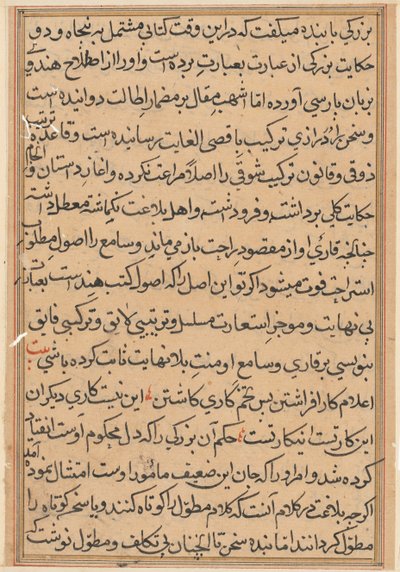 بزرکی با بنده میکفت که درین وقت کتابی مشتمل بر پنجاه و دو
حکایت بزرکی از عبارت بعبارت برده است و او را از اصطلاح هندوی
بزبان پارسی آورده اما اشهب مقال بر مضمار اطالت دوانیده است
و سخن را از درازی ترکیب باقصی الغایت رسانیده است و قاعده ترتیب
ذوقی و قانون ترکیب شوقی را اصلا مراعت نکرده و اغاز داستان و انجام
حکایت کلی برداشته و فرود داشته و اهل بلاغت نکماشته معطل داشته
جنانجه قاری او از مقصود راحت باز می ماند و سامع را اصول مطلوب
استراحت فوت میشود اکر تو این اصل را که اصول کتب هند است بعبارت
بی نهایت و موجز استعارت مسلسل و ترتیبی لایق و ترکیبی فایق
بنویسی بر قاری و سامع او منت بلا نهایت ثابت کرده باشی بیت
اعلام کار افراشتن پس تخم کاری کاشتن این نیست کاری دیکران
این کار تست این کار تست حکم آن بزرکی را که دل محکوم اوست انقیاد
کرده شد و امر او را که جان این ضعیف مامور اوست امتثال نموده آمد
اکرجه بلاغت در کلام آنست که کلام مطول را کوتاه کنند و یا سخن کوتاه را
مطول کردانند اما بنده سخن تا انجنان بی تکلف و مطول نوشت که